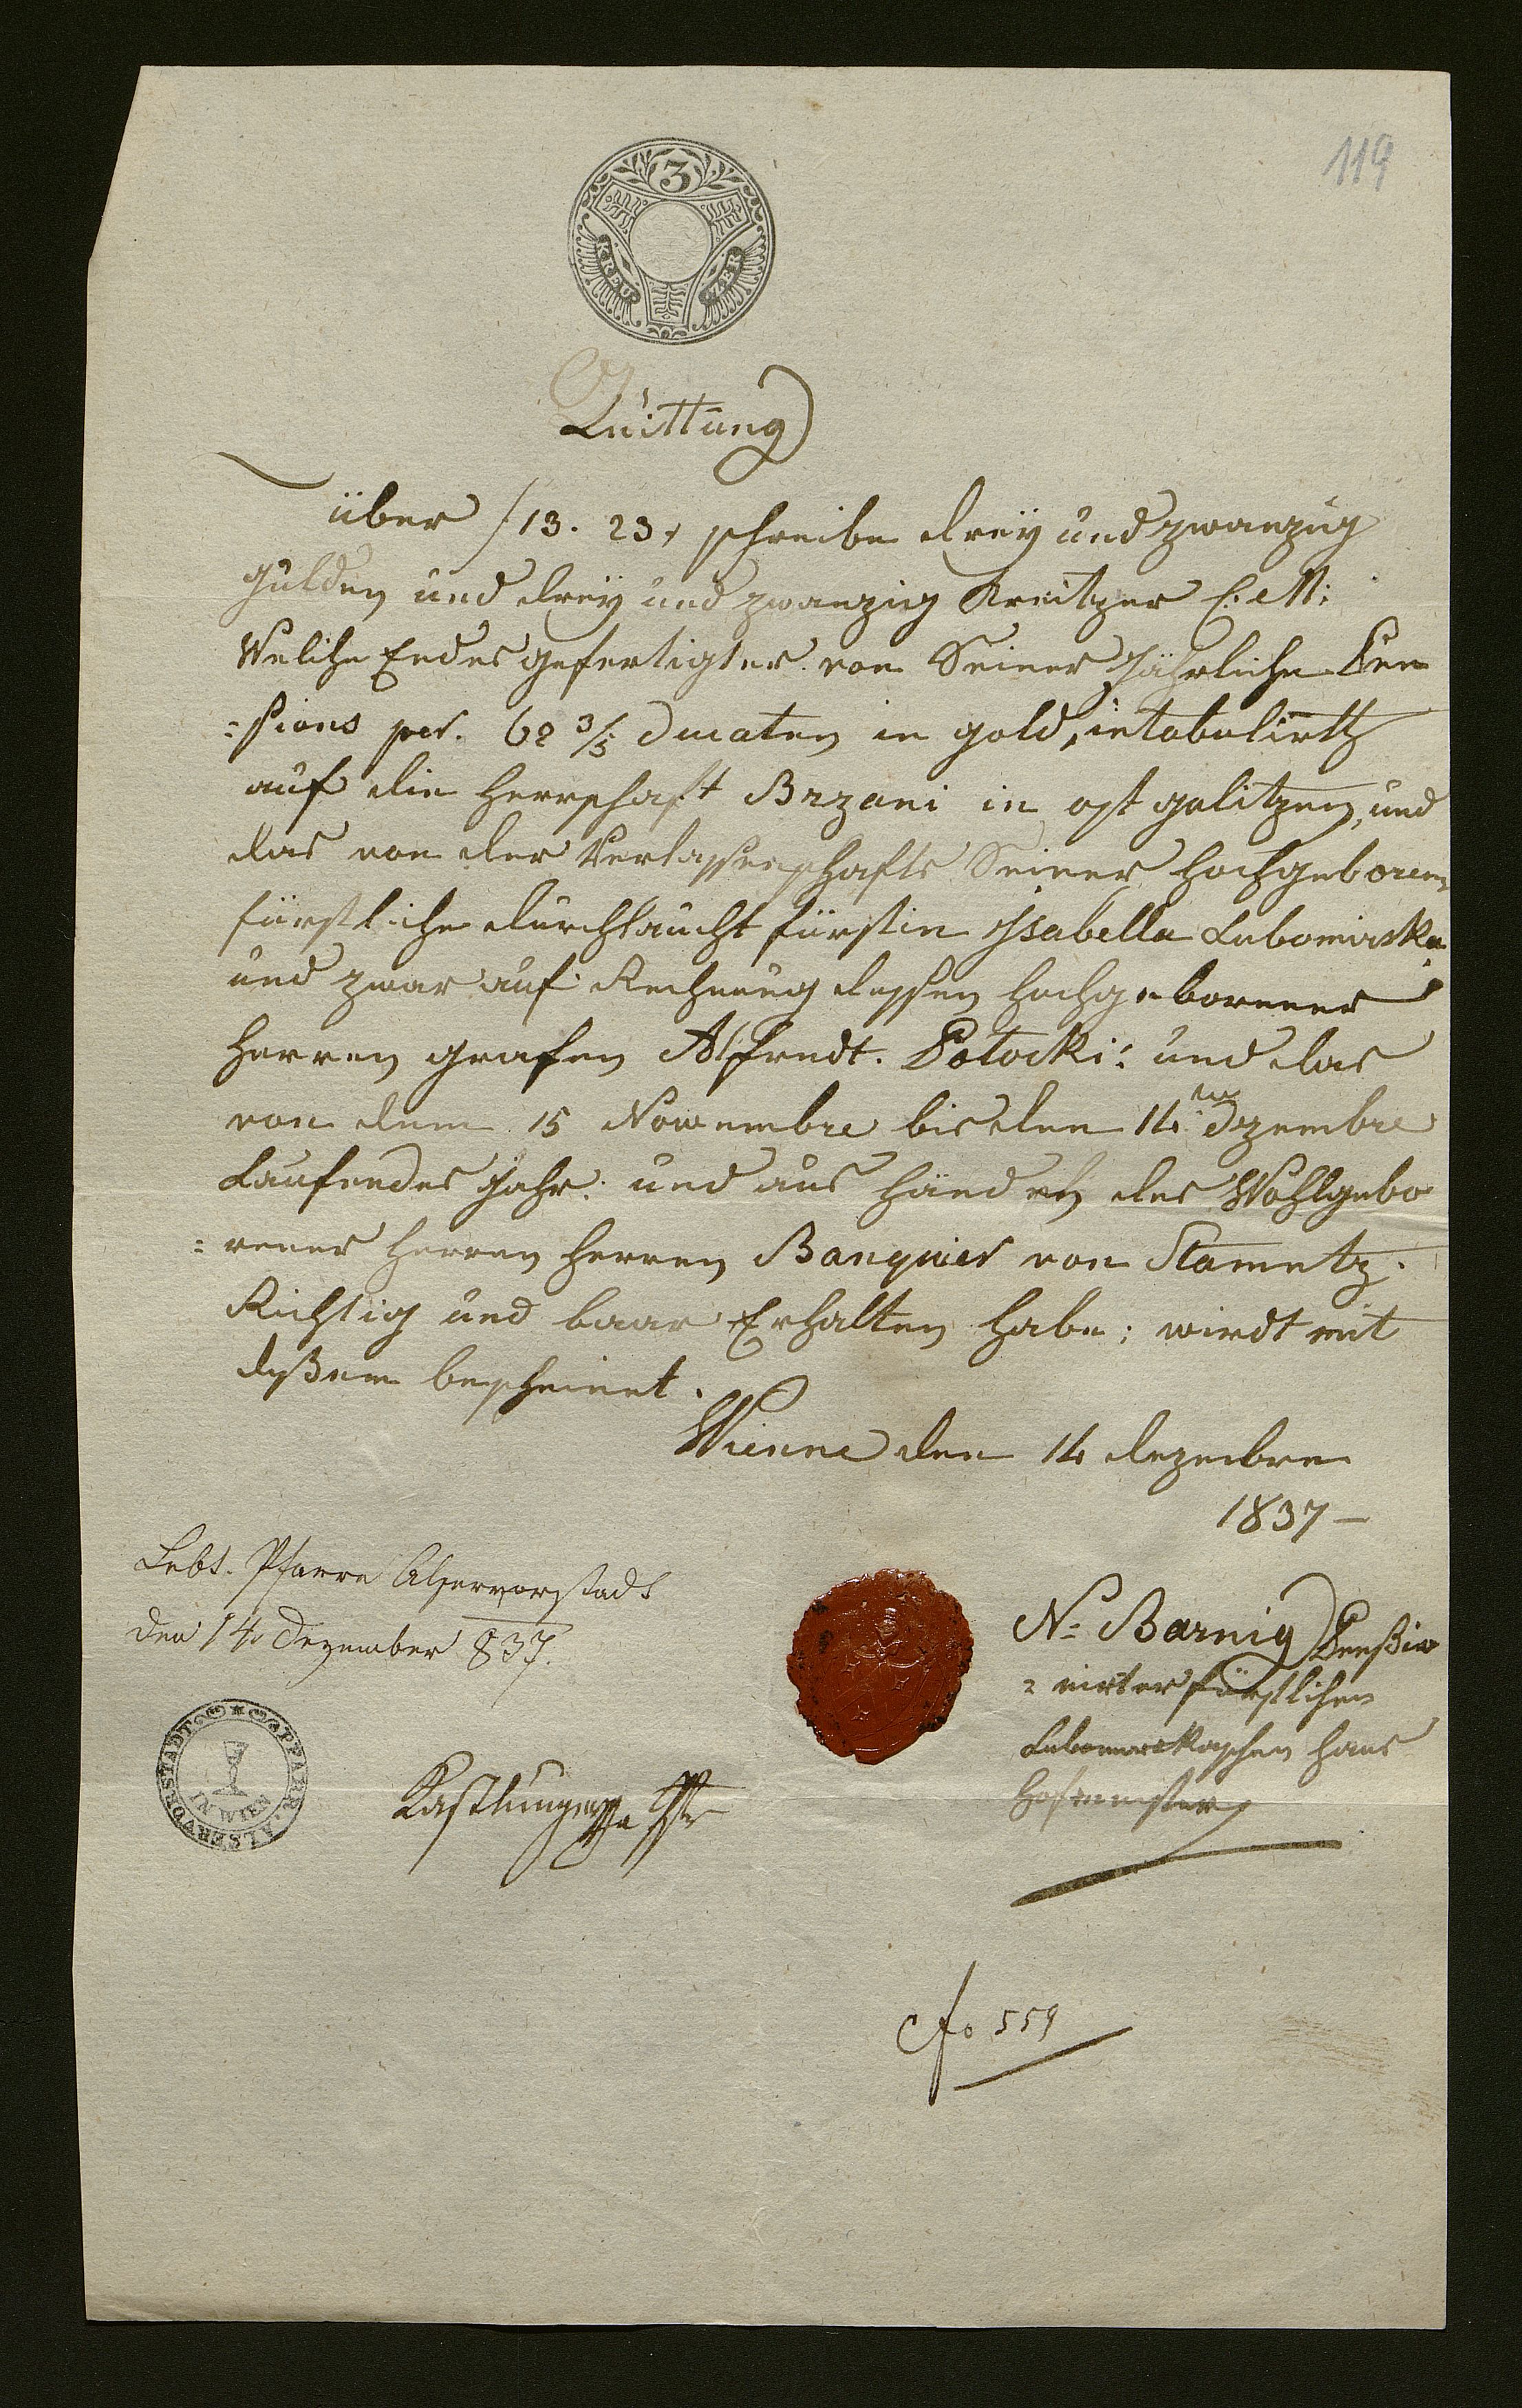 119
3
KREU ZER
Quittung
über f 13. 23. schreibe dreÿ und zwanzig
gulden und dreÿ und zwanzig Kreitzer C: M:
Welche Endes gefertigter von Seiner Jährliche Pen
=sions per. 68 3/5 Ducaten in gold, intabulirth
auf die Herrschaft Brzani in ost galitzen, und
das von der Verlassenschafts Seiner hochgeboren
fürstliche durchlaucht fürstin Isabella Lubomirska
und zwar auf Rechnung dessen hochgeborener
Herren grafen Alfredt. Potocki: und das
von dem 15 Nowembre bis den 14ten Dezembre
Laufendes Jahr: und aus Händen des Wohlgebo
=rener Herren Herren Banquier von Stametz.
Richtig und baar Erhalten habe; wirdt mit
dißem bescheinet.
Wienne den 14 dezembre
1837 —
Lebt. Pfarre Alservorstadt
den 14 Dezember 837.
N: Barnig Penßio
=nirter fürstlichen
Lubomirskaschen Haus
Hofmeister
PFARR ALSERVORSTADT
IN WIEN
fo 559